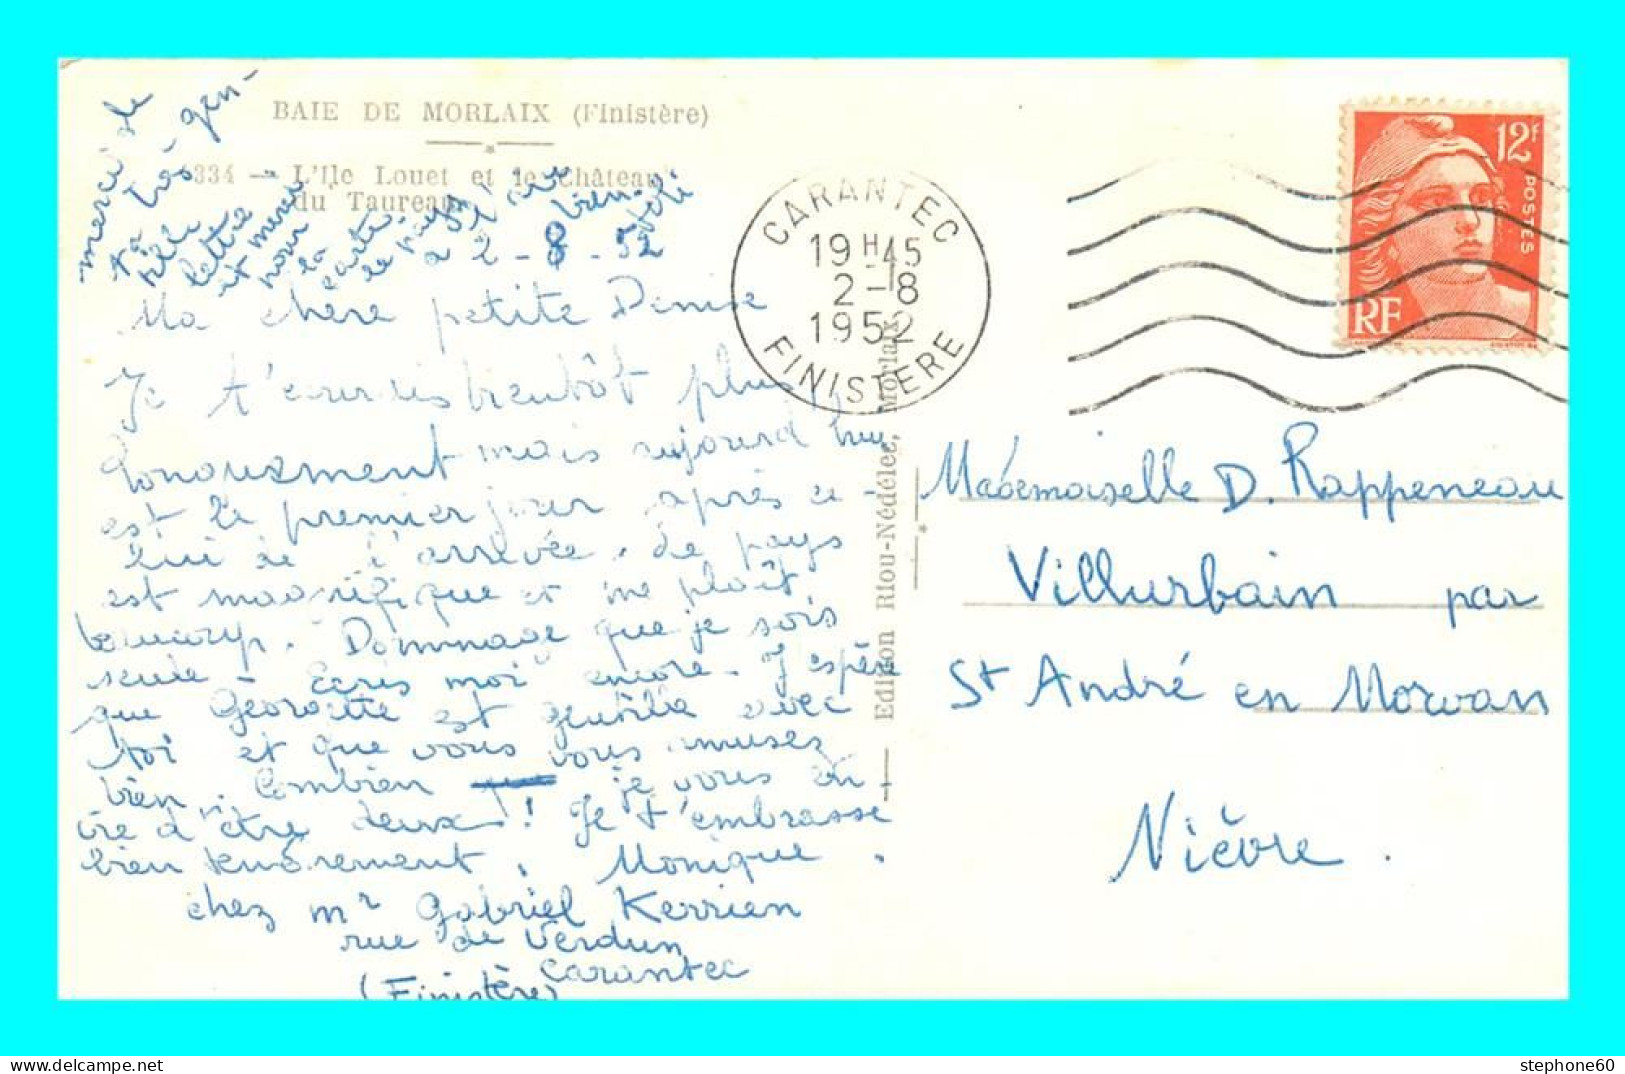 BAIE DE MORLAIX (Finistère)
334 — L'Ile Louet et le Château
du Taureau
merci de
ta très gen-
tille
lettre
et merci
pour
la
carte.
Le pays
a l'air bien
joli
2-8-52
CARANTEC
19 H 45
2-8
1952
FINISTERE
12F
POSTES
RF
Ma chère petite Denise
Je t'écurirais bientôt plus
longuement mais aujourd'hui
est le premier jour après ce-
lui de l'arrivée. Le pays
est magnifique et me plaît
beaucoup. Dommage que je sois
seule - Ecris moi encore - J'espère
que Georgette est gentille avec
toi et que vous vous amusez
bien. Combien je vous en-
vie d'être deux! Je t'embrasse
bien tendrement. Monique.
chez Mr Gabriel Kerrien
rue de Verdun
Carantec
(Finistère)
Edition Riou-Nédélec, Morlaix
Mademoiselle D. Rappeneau
Villurbain par
St André en Morvan
Nièvre.
stephone60